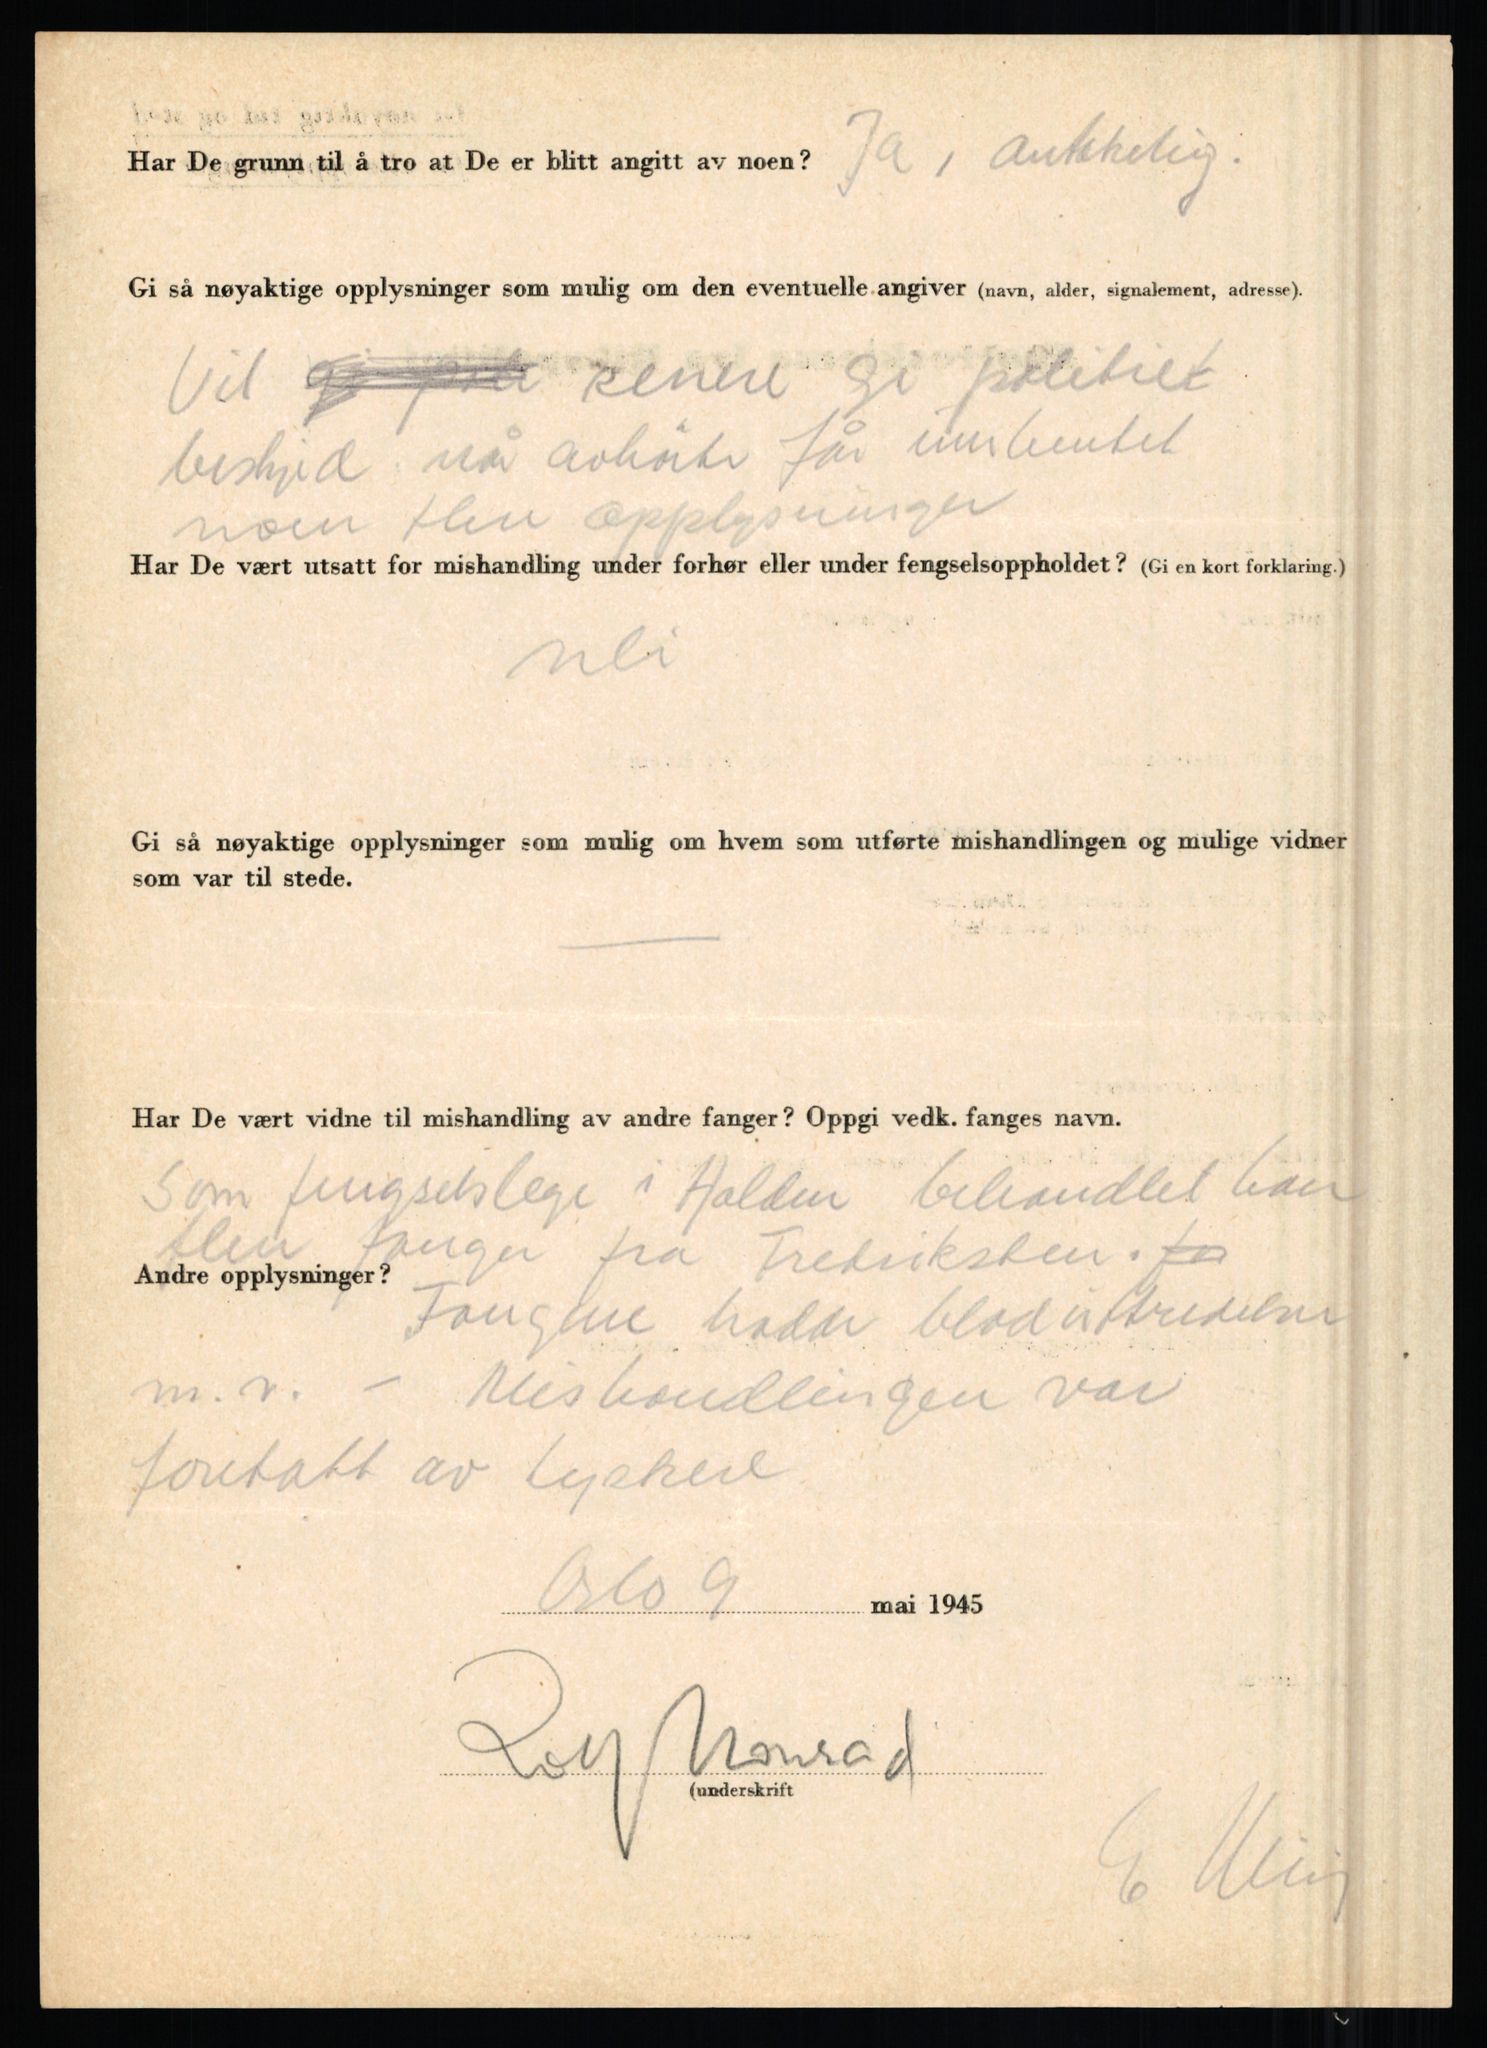 Har De grunn til å tro at De er blitt angitt av noen? Ja, antakelig.
Gi så nøyaktige opplysninger som mulig om den eventuelle angiver (navn, alder, signalement, adresse).
Vil senere gi politiet
beskjed når avhørte får innhentet
noen flere opplysninger
Har De vært utsatt for mishandling under forhør eller under fengselsoppholdet? (Gi en kort forklaring.)
Nei
Gi så nøyaktige opplysninger som mulig om hvem som utførte mishandlingen og mulige vidner
som var til stede.
Har De vært vidne til mishandling av andre fanger? Oppgi vedk. fanges navn.
Som fengselslege i Halden behandlet han
flere fanger fra Fredriksten.
Andre opplysninger?
Fangene hadde blodutredelser
m.v. - Mishandlingen var
foretatt av tyskere
Oslo 9 mai 1945
Rolf Konrad
(underskrift
E